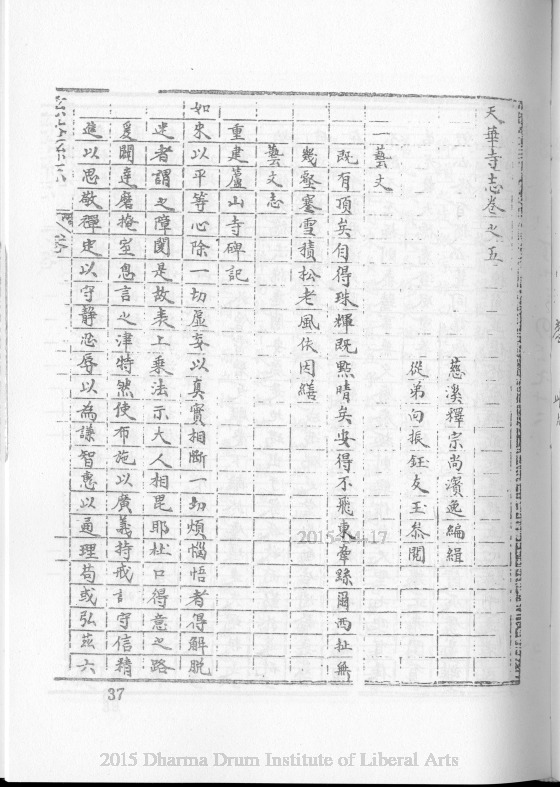 天華寺志卷之五
慈溪釋宗尚濱逸編緝
從弟向振鈺友玉叅閱
一藝文
既有頂矣自得珠輝既點晴矣安得不飛東牽緑爾西扯無
幾壑蹇雪積松老風依因繕
藝文志
重建蘆山寺碑記
如來以平等心除一切虛妄以真實相斷一切煩惱悟者得解脫
迷者謂之障閡是故表上乘法示大人相毘耶杜口得意之路
爰闢達磨掩室息言之津特然使布施以廣義持戒言守信精
進以思敬禪定以守静忍辱以為謙智慧以通理苟或弘茲六
37
2015 4 17
2015 Dharma Drum Institute of Liberal Arts